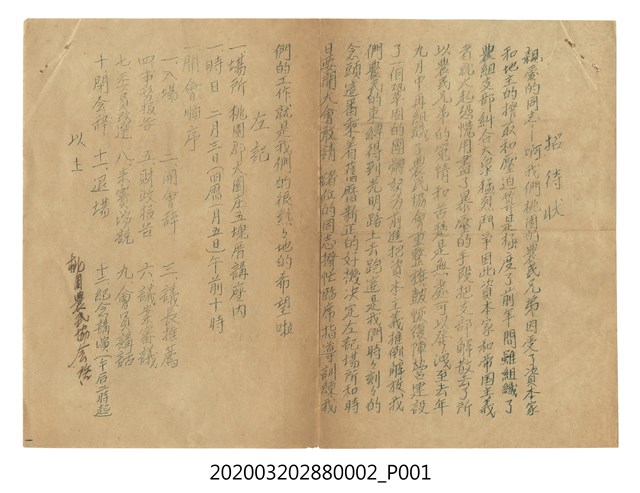 招待狀
親愛的同志—啊我們桃園的農民兄弟因受了資本家
和地主的搾取和壓迫算是極度了前年間雖組織了
農組支部糾合大眾猛烈鬥爭因此資本家和帝国主義
者就人起恐惶用盡了暴壓的手段把支部解散去了所
以農民兄弟的冤情和苦楚是無處可以屏洩至去年
九月中再組織了農民協會重整旗鼓恢復陣營建設
了一個鞏固的團體努力前進把資本主義推倒解放我
們農民的束縛得到光明路上去跑這是我們時々刻々的
念頭這番乘着舊曆新正的好機決定左記場所和時
日要開大會敢請 諸位的同志撥忙臨席指導訓練我
們的工作就是我們的很熱々地的希望啦
左記
一場所 桃園郡大園庄五塊厝講座內
一時日 二月三日(旧曆一月五日)午前十時
一開會順序
一入場 二開會辞 三議長推薦
四事務報告 五財政報告 六議案審議
七委員改選 八來賓講說 九會員講話
十閉會辞 十一退場 十二紀念講演(午后二時起
以上
桃園農民協會啓
202003202880002_P001